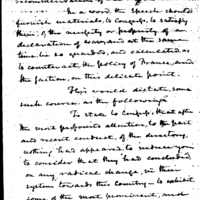 In a word the Speech should
furnish materials to Congress to satisfy
them, of the necessity or propriety of a
declaration of war, and at the same
time, be so guarded, and calculated as
to counteract, the policy of France, and
the faction, on this delicate point.
This would dictate, some
such course as the following
To state to Congress, that after
the most profound attention, to the past
and recent conduct, of the directory,
nothing had appeared to induce you
to consider that they had concluded
on any radical change, in their
system towards this Country — to exhibit
some of the most prominent, and